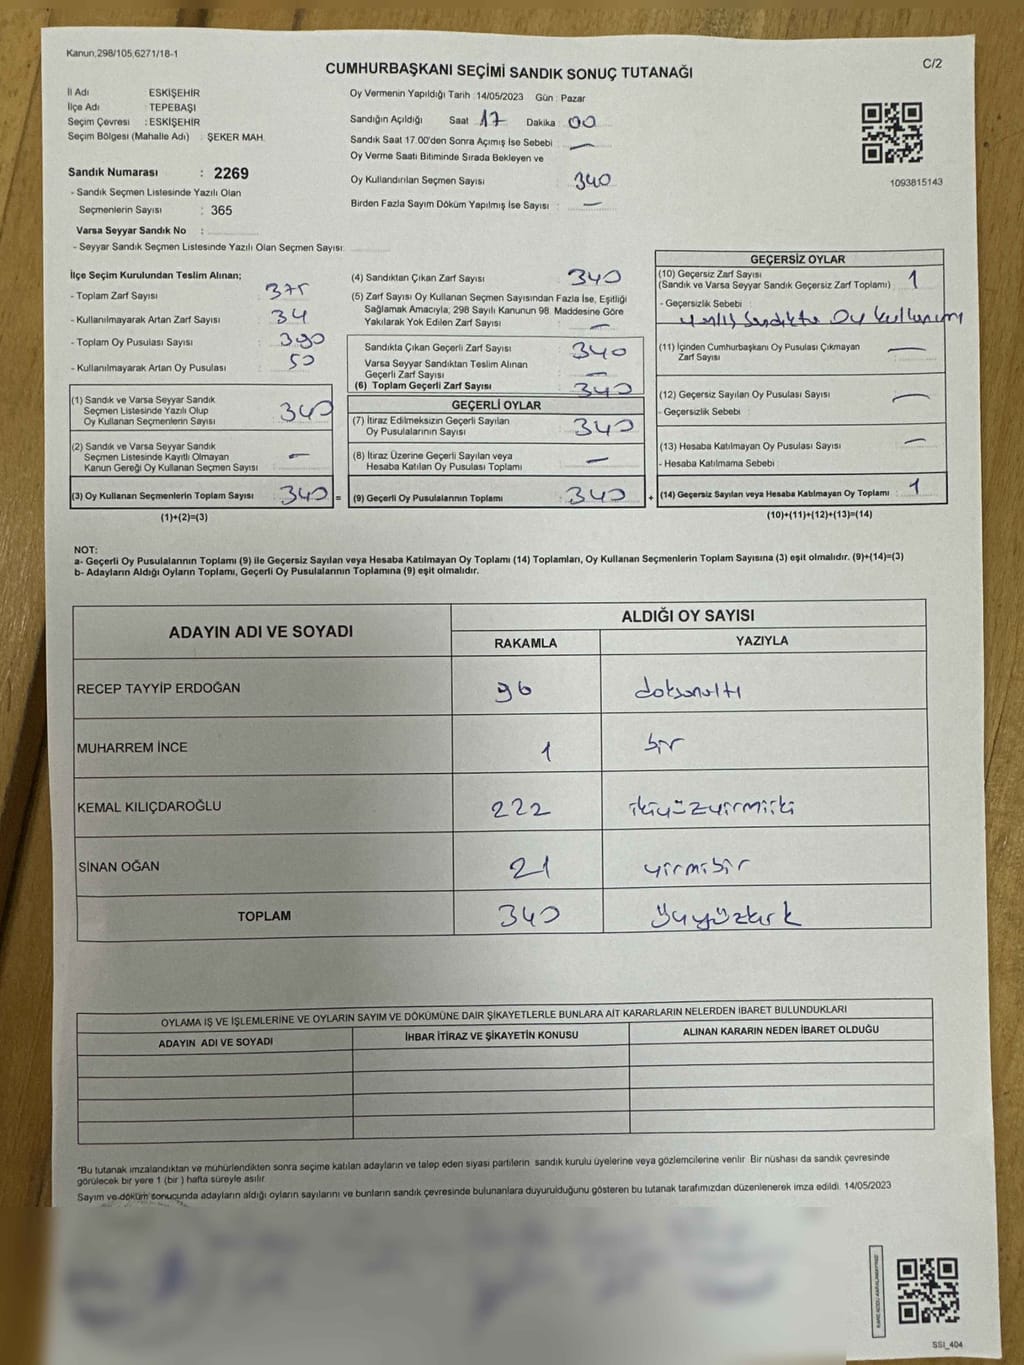 Kanun,298/105,6271/18-1
CUMHURBAŞKANI SEÇİMİ SANDIK SONUÇ TUTANAĞI
C/2
İl Adı : ESKİŞEHİR
İlçe Adı : TEPEBAŞI
Seçim Çevresi : ESKİŞEHİR
Seçim Bölgesi (Mahalle Adı) : ŞEKER MAH.
Sandık Numarası : 2269
- Sandık Seçmen Listesinde Yazılı Olan
Seçmenlerin Sayısı : 365
Varsa Seyyar Sandık No :
- Seyyar Sandık Seçmen Listesinde Yazılı Olan Seçmen Sayısı:
Oy Vermenin Yapıldığı Tarih :14/05/2023 Gün : Pazar
Sandığın Açıldığı Saat 17 Dakika 00
Sandık Saat 17.00'den Sonra Açımış İse Sebebi : —
Oy Verme Saati Bitiminde Sırada Bekleyen ve
Oy Kullandırılan Seçmen Sayısı : 340
Birden Fazla Sayım Döküm Yapılmış İse Sayısı : —
1093815143
İlçe Seçim Kurulundan Teslim Alınan;
- Toplam Zarf Sayısı : 375
- Kullanılmayarak Artan Zarf Sayısı : 34
- Toplam Oy Pusulası Sayısı : 390
- Kullanılmayarak Artan Oy Pusulası : 50
(1) Sandık ve Varsa Seyyar Sandık
Seçmen Listesinde Yazılı Olup
Oy Kullanan Seçmenlerin Sayısı : 340
(2) Sandık ve Varsa Seyyar Sandık
Seçmen Listesinde Kayıtlı Olmayan
Kanun Gereği Oy Kullanan Seçmen Sayısı : —
(3) Oy Kullanan Seçmenlerin Toplam Sayısı : 340 =
(1)+(2)=(3)
(4) Sandıktan Çıkan Zarf Sayısı : 340
(5) Zarf Sayısı Oy Kullanan Seçmen Sayısından Fazla İse, Eşitliği
Sağlamak Amacıyla; 298 Sayılı Kanunun 98. Maddesine Göre
Yakılarak Yok Edilen Zarf Sayısı : —
Sandıkta Çıkan Geçerli Zarf Sayısı : 340
Varsa Seyyar Sandıktan Teslim Alınan
Geçerli Zarf Sayısı : —
(6) Toplam Geçerli Zarf Sayısı : 340
GEÇERLİ OYLAR
(7) İtiraz Edilmeksizin Geçerli Sayılan
Oy Pusulalarının Sayısı : 340
(8) İtiraz Üzerine Geçerli Sayılan veya
Hesaba Katılan Oy Pusulası Toplamı : —
(9) Geçerli Oy Pusulalarının Toplamı : 340 +
GEÇERSİZ OYLAR
(10) Geçersiz Zarf Sayısı
(Sandık ve Varsa Seyyar Sandık Geçersiz Zarf Toplamı) : 1
- Geçersizlik Sebebi :
yanlış sandıkta oy kullanımı
(11) İçinden Cumhurbaşkanı Oy Pusulası Çıkmayan
Zarf Sayısı : —
(12) Geçersiz Sayılan Oy Pusulası Sayısı : —
- Geçersizlik Sebebi :
(13) Hesaba Katılmayan Oy Pusulası Sayısı : —
- Hesaba Katılmama Sebebi :
(14) Geçersiz Sayılan veya Hesaba Katılmayan Oy Toplamı : 1
(10)+(11)+(12)+(13)=(14)
NOT:
a- Geçerli Oy Pusulalarının Toplamı (9) ile Geçersiz Sayılan veya Hesaba Katılmayan Oy Toplamı (14) Toplamları, Oy Kullanan Seçmenlerin Toplam Sayısına (3) eşit olmalıdır. (9)+(14)=(3)
b- Adayların Aldığı Oyların Toplamı, Geçerli Oy Pusulalarının Toplamına (9) eşit olmalıdır.
ADAYIN ADI VE SOYADI
ALDIĞI OY SAYISI
RAKAMLA YAZIYLA
RECEP TAYYİP ERDOĞAN 96 doksanaltı
MUHARREM İNCE 1 bir
KEMAL KILIÇDAROĞLU 222 ikiyüzyirmiiki
SİNAN OĞAN 21 yirmibir
TOPLAM 340 üçyüzkırk
OYLAMA İŞ VE İŞLEMLERİNE VE OYLARIN SAYIM VE DÖKÜMÜNE DAİR ŞİKAYETLERLE BUNLARA AİT KARARLARIN NELERDEN İBARET BULUNDUKLARI
ADAYIN ADI VE SOYADI İHBAR İTİRAZ VE ŞİKAYETİN KONUSU ALINAN KARARIN NEDEN İBARET OLDUĞU
*Bu tutanak imzalandıktan ve mühürlendikten sonra seçime katılan adayların ve talep eden siyasi partilerin sandık kurulu üyelerine veya gözlemcilerine verilir. Bir nüshası da sandık çevresinde
görülecek bir yere 1 (bir ) hafta süreyle asılır.
Sayım ve döküm sonucunda adayların aldığı oyların sayılarını ve bunların sandık çevresinde bulunanlara duyurulduğunu gösteren bu tutanak tarafımızdan düzenlenerek imza edildi. 14/05/2023
SSI_404